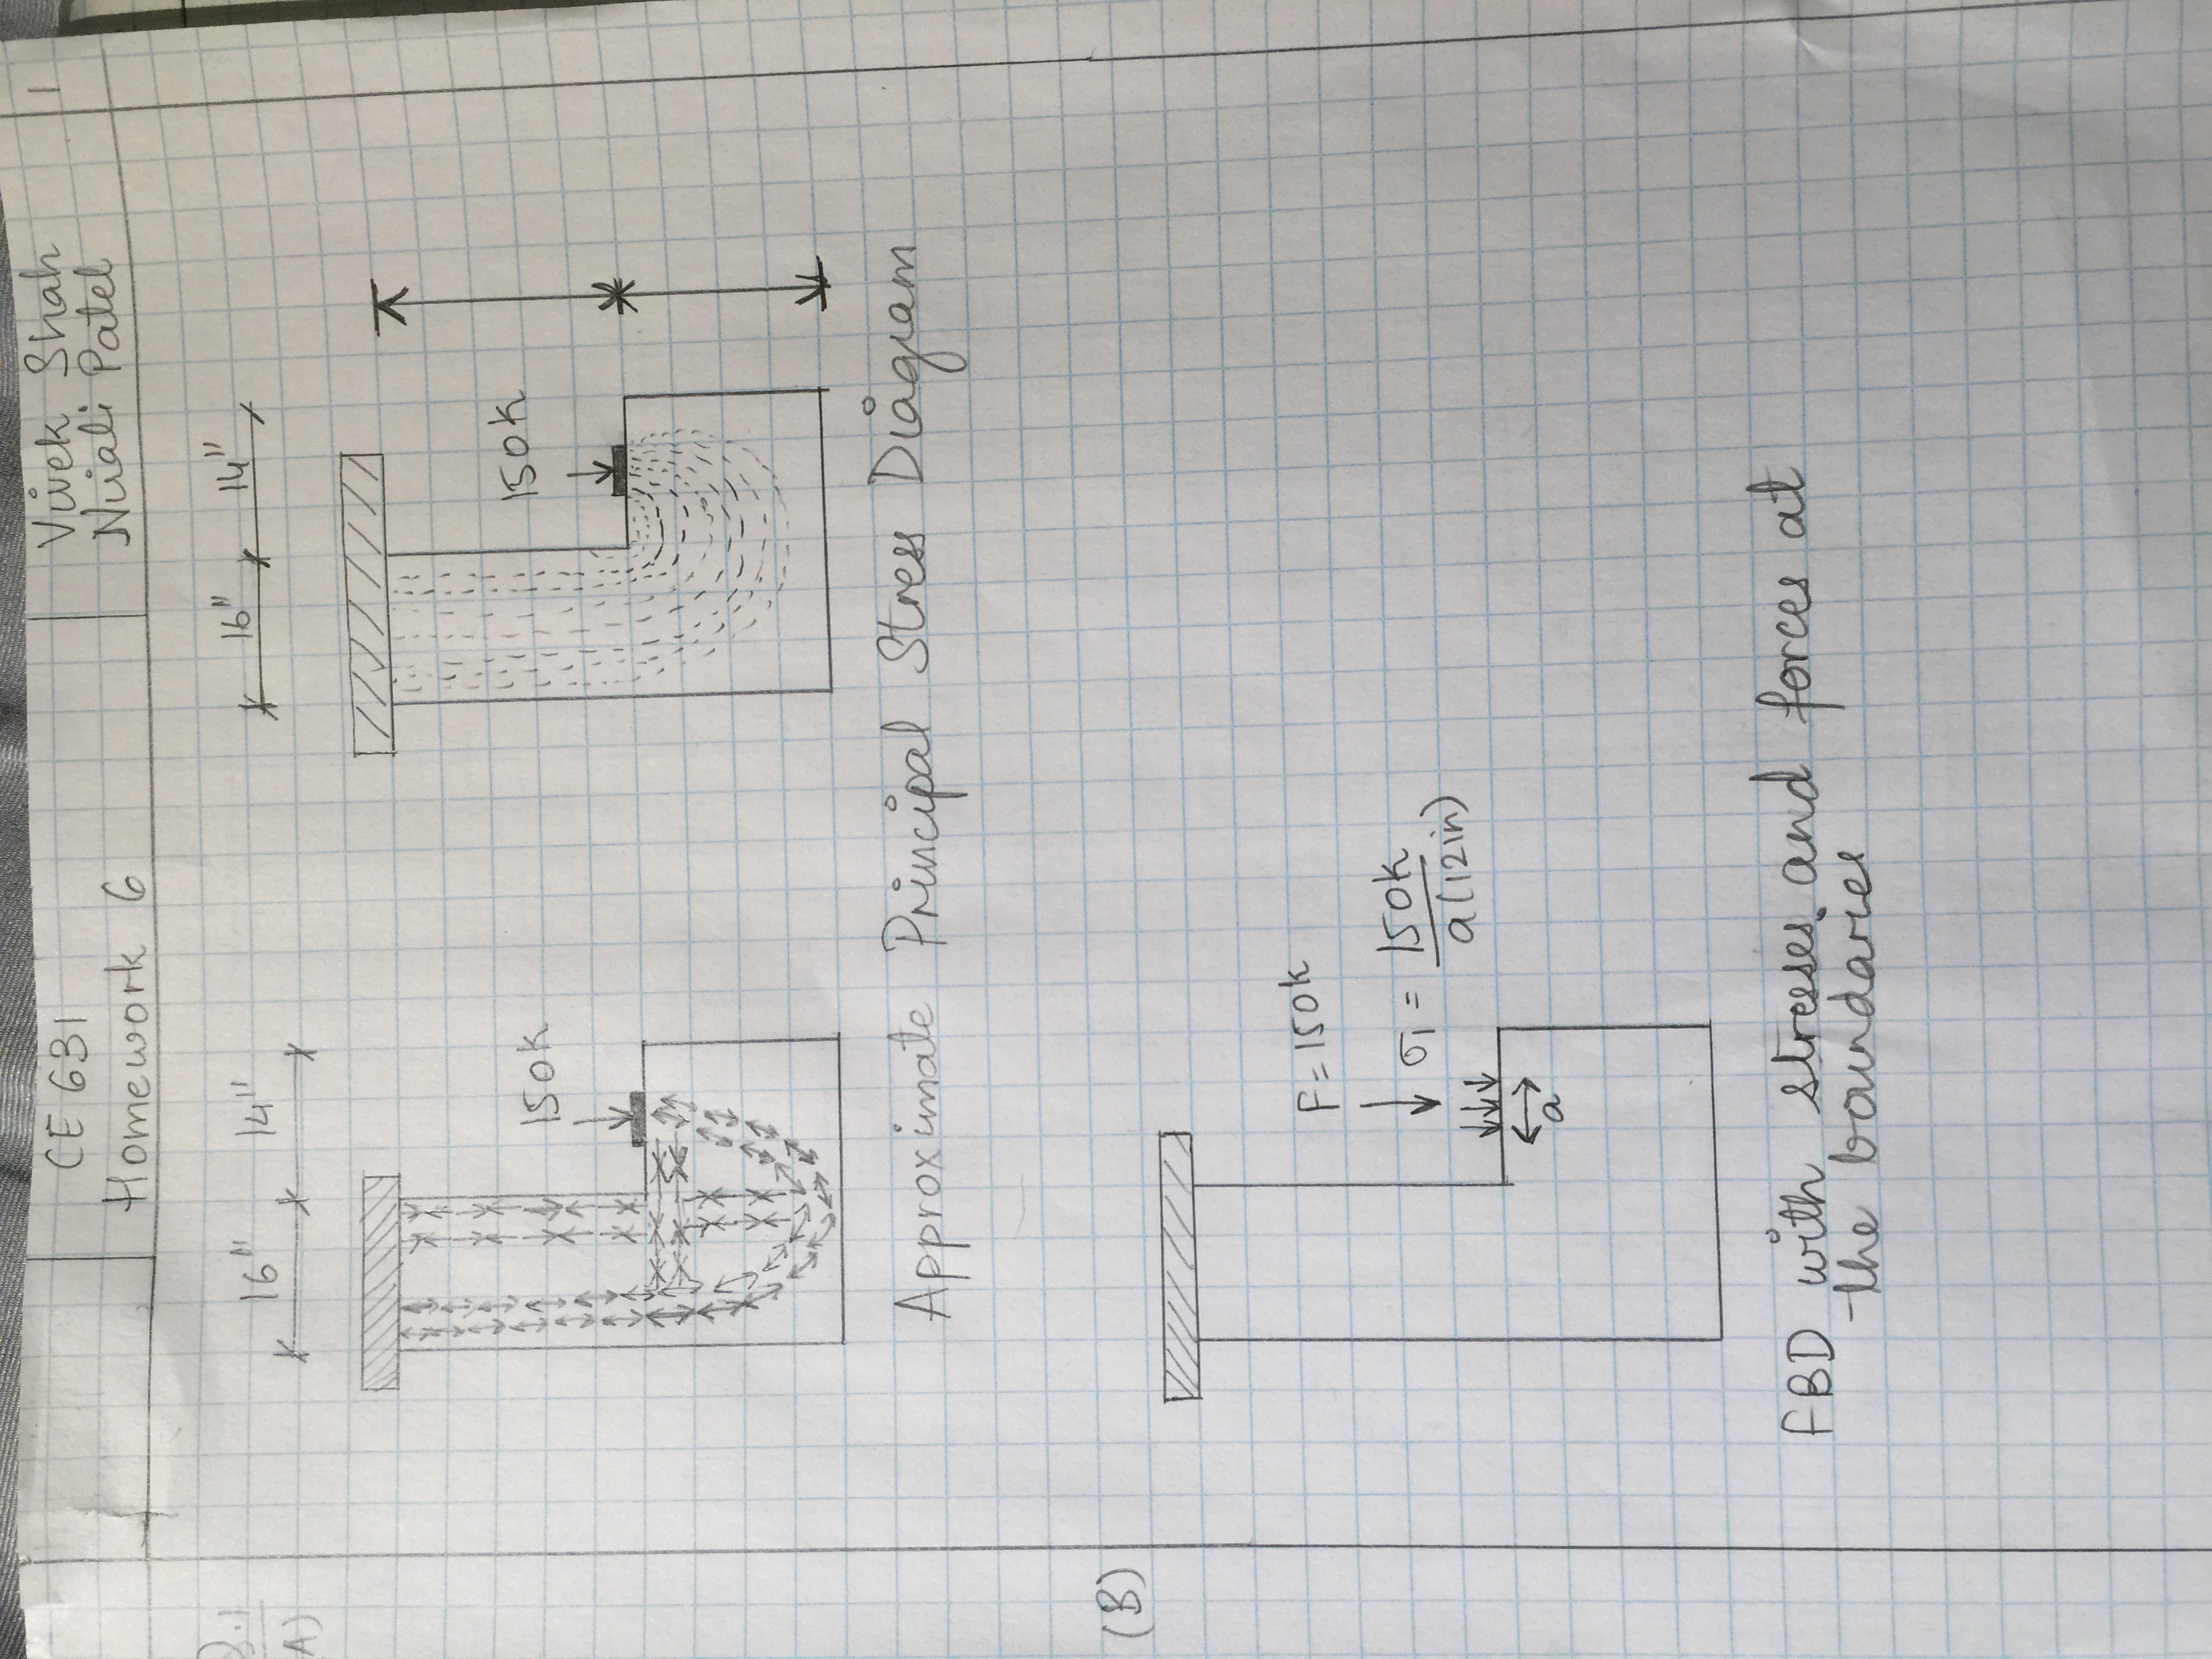 CE 631
Homework 6
Vivek Shah
Patel
1
A)
16" 14"
16" 14"
150k
150k
Approximate Principal Stress Diagram
(B)
F = 150k
σ₁ = 150k
a(12in)
a
FBD with stresses and forces at
the boundaries